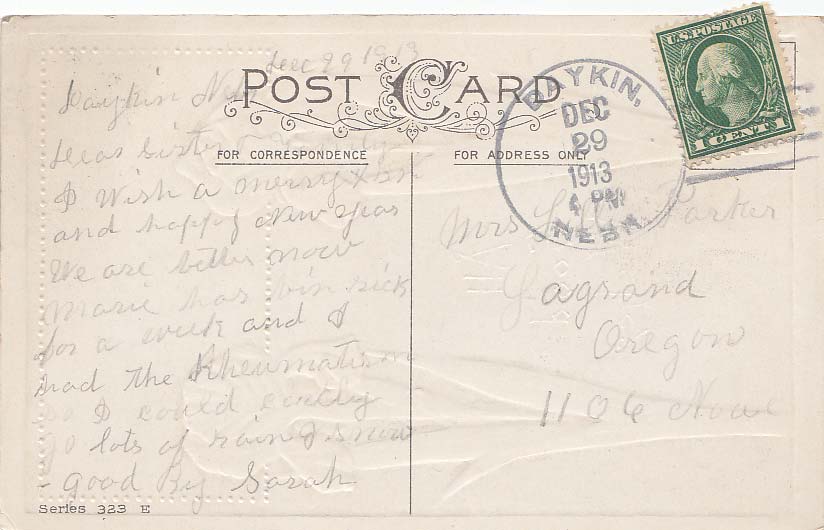 Dec 29 1913
POST CARD
Daykin Neb
FOR CORRESPONDENCE
FOR ADDRESS ONLY
DAYKIN,
DEC
29
1913
4 PM
NEBR.
U.S. POSTAGE
1 CENT 1
Dear Sister
I Wish a merry Xmas
and happy New Year
We are better now
Marie has bin sick
for a week and I
had the Rheumatism
so I could
go lots of rain & snow
- Good By Sarah
Mrs Parker
Lagrand
Oregon
1106
Series 323 E